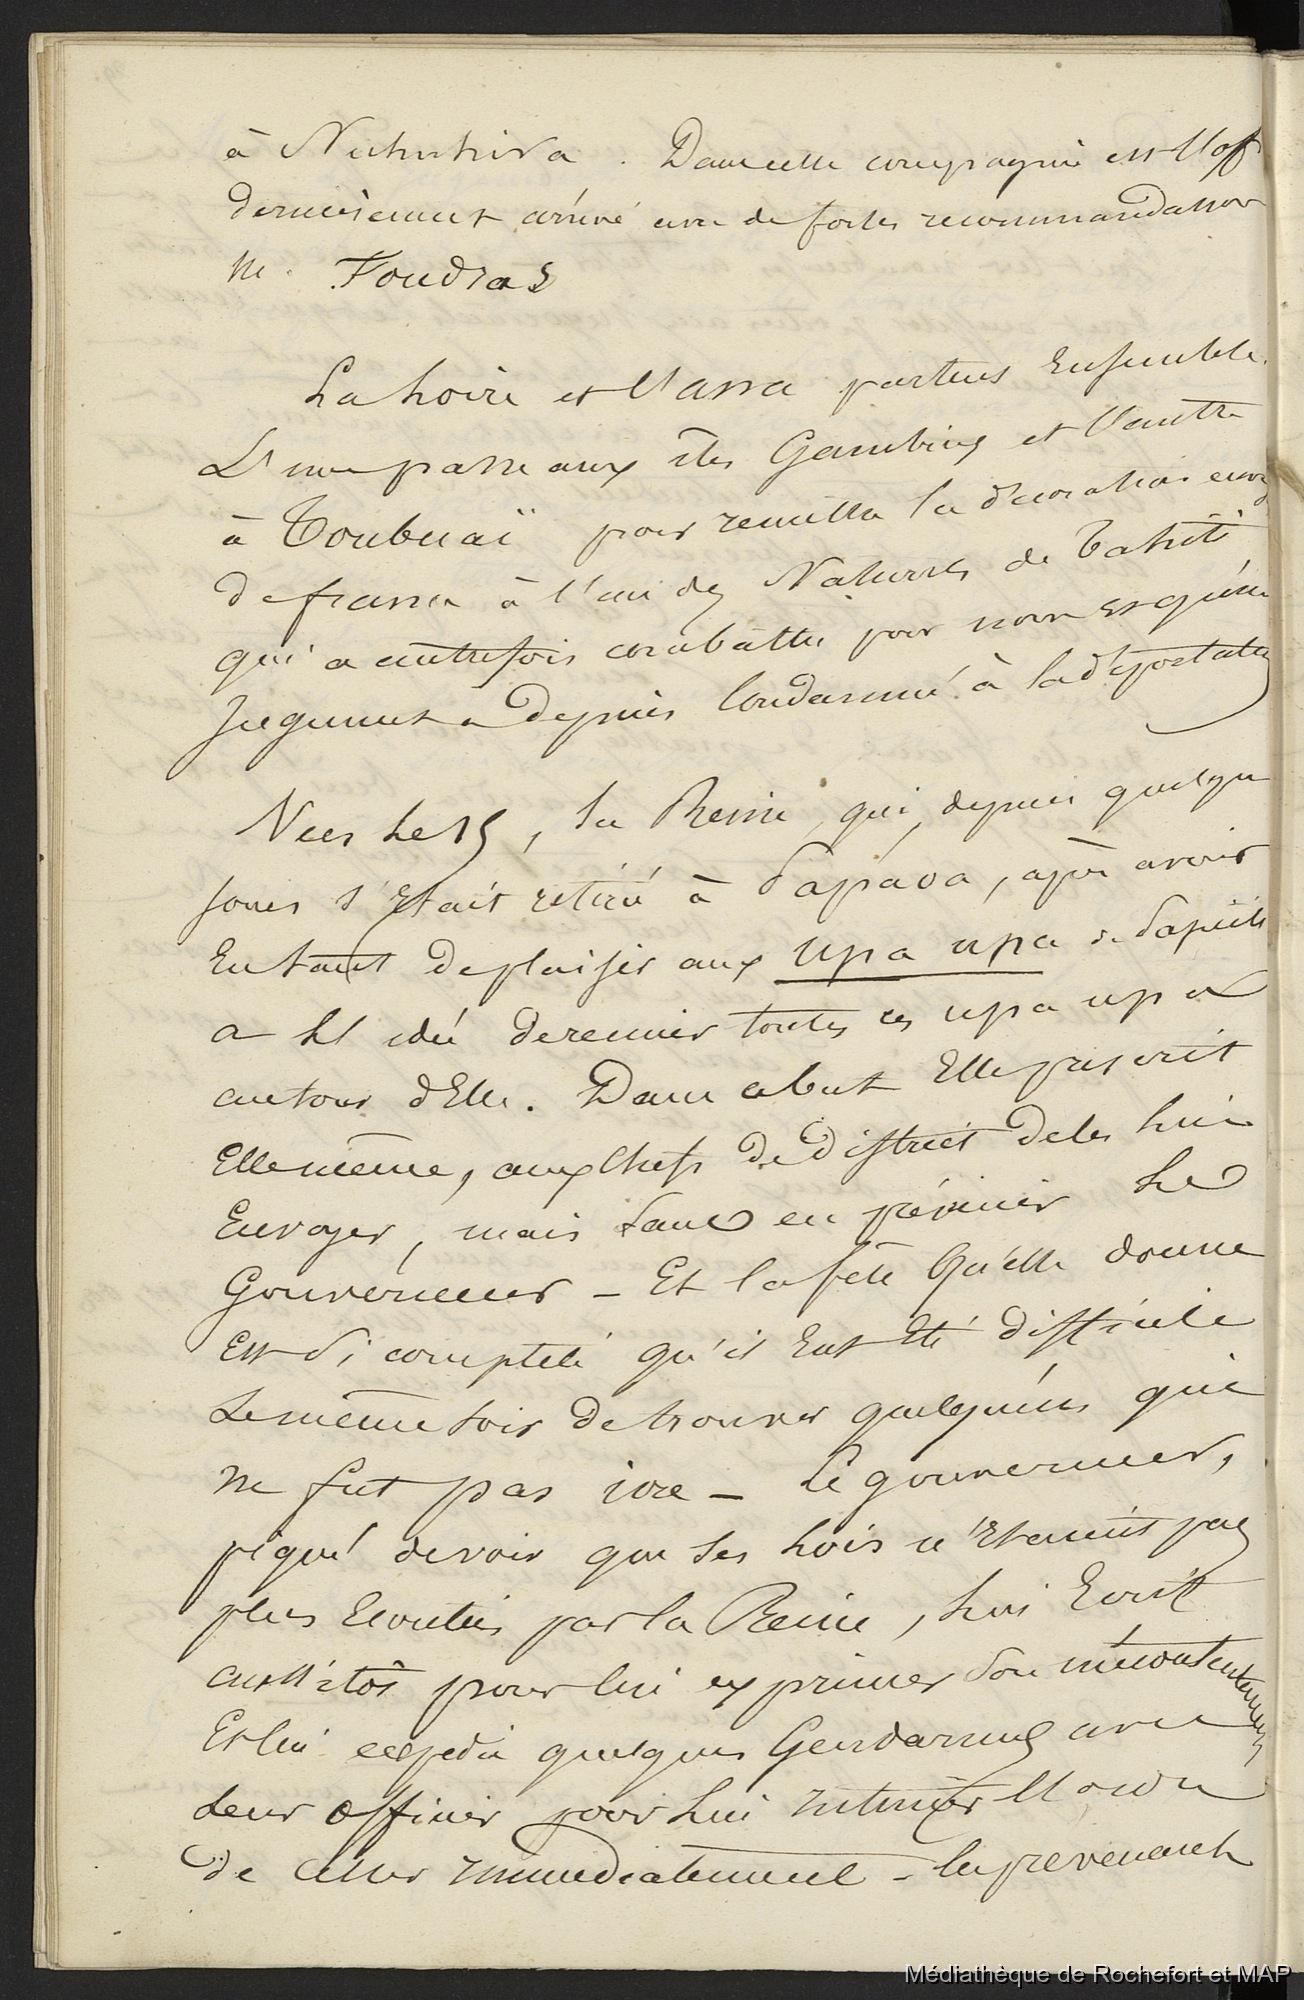 à Nukuhiva. Dans cette compagnie est l'off
dernièrement arrivé avec de fortes recommandations
M. Foudras
La Loire et l'assa partent Ensemble.
L'une passe aux îles Gambier et l'autre
à Toubuaï pour remettre la décoration envoy
de france à l'un des Naturels de Tahiti
qui a autrefois combattu pour nous Et qu'un
Jugement a depuis Condamné à la déportation
Vers le 15, la Reine, qui, depuis quelque
Jours s'Etait retirée à Papaoa, après avoir
Eu tant de plaisir aux upa upa de Papeïti
a Eu idée de reunir toutes ces upa upa
autour d'Elle. Dans ce but Elle prescrit
Elle même, aux Chefs de District de les lui
Envoyer, mais sans en prévenir Le
Gouverneur – Et la fête qu'elle donne
Est si complète qu'il Eut Eté difficile
Le même soir de trouver quelqu'un qui
ne fut pas ivre – Le gouverneur,
piqué de voir que ses Lois n'Etaient pas
plus Ecoutées par la Reine, lui Ecrit
aussitôt pour lui exprimer son mécontentement
Et lui expédie quelques Gendarmes avec
Leur officier pour Lui intimer l'ordre
de cesser immédiatement – la prevenant
Médiathèque de Rochefort et MAP